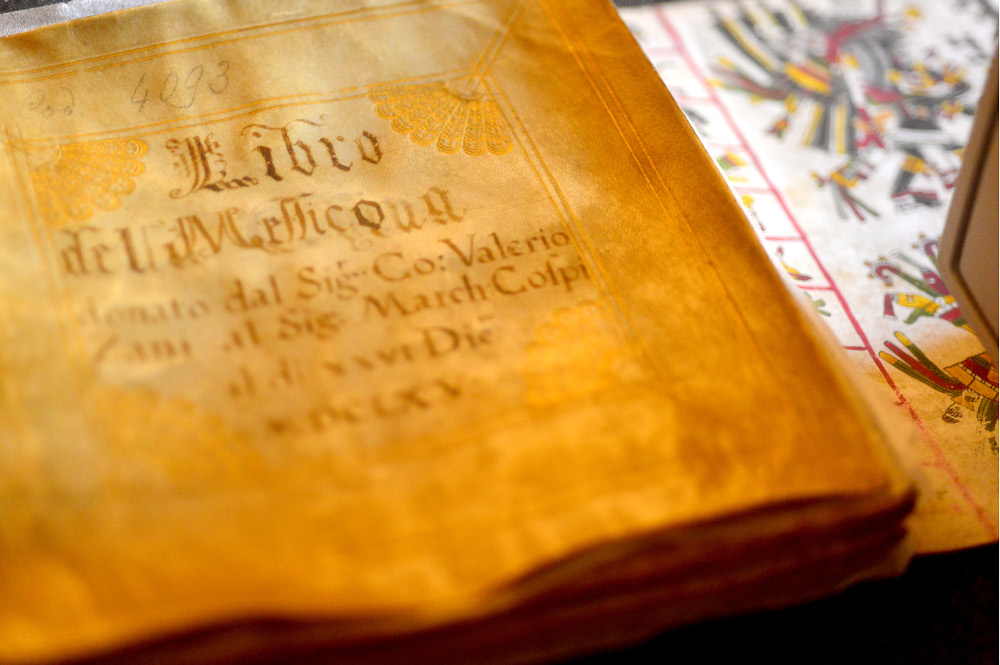 Cod. 4093
Libro
della Messico
donato dal Sig.r Co: Valerio
Zani al Sig. March: Cospi
il dì xxvi Dic.e
MDCLXV